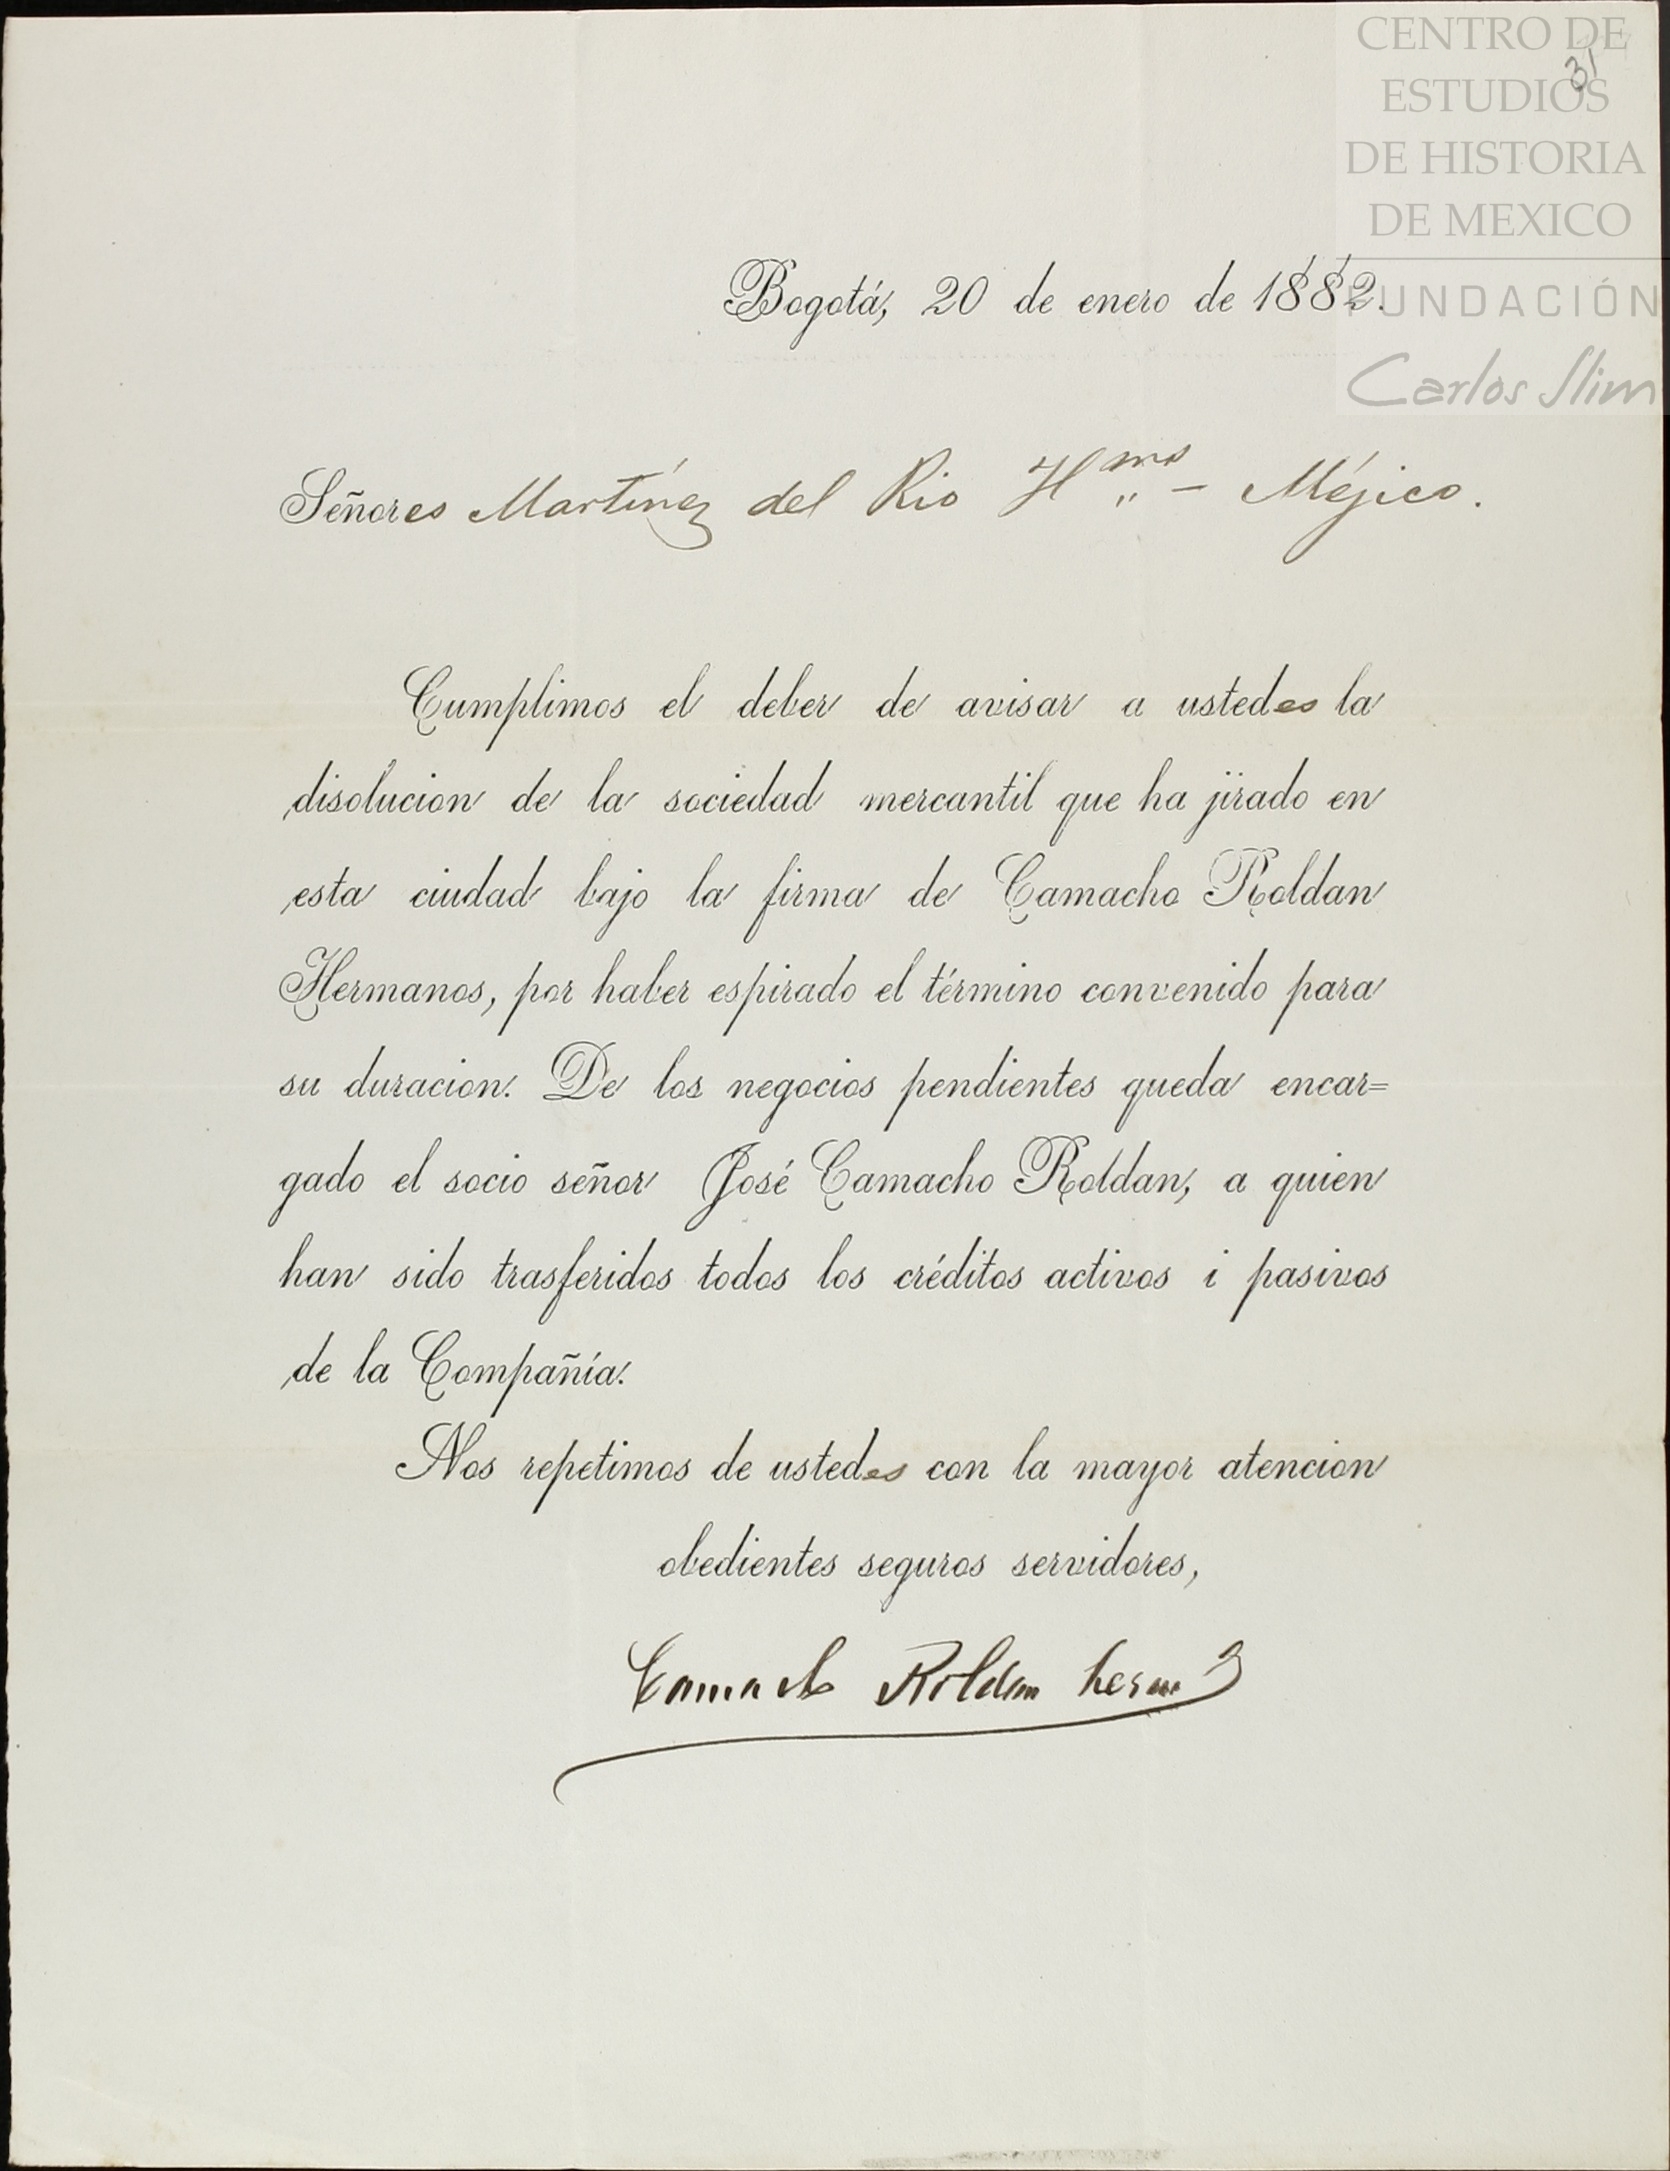 CENTRO DE
ESTUDIOS
DE HISTORIA
DE MEXICO
FUNDACIÓN
Carlos Slim
31
Bogotá, 20 de enero de 1882.
Señores Martínez del Rio Hmos — Méjico.
Cumplimos el deber de avisar a ustedes la
disolucion de la sociedad mercantil que ha jirado en
esta ciudad bajo la firma de Camacho Roldan
Hermanos, por haber espirado el término convenido para
su duracion. De los negocios pendientes queda encar=
gado el socio señor José Camacho Roldan, a quien
han sido trasferidos todos los créditos activos i pasivos
de la Compañía.
Nos repetimos de ustedes con la mayor atencion
obedientes seguros servidores,
Camacho Roldan herms